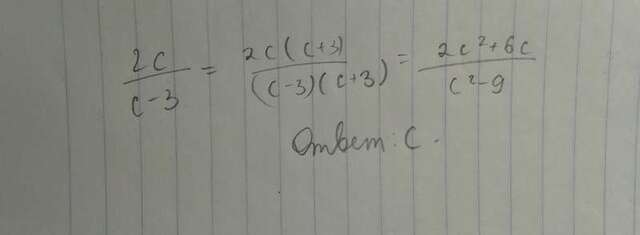 2c/(c-3) = 2c(c+3)/((c-3)(c+3)) = (2c²+6c)/(c²-9)
Ответ: С.